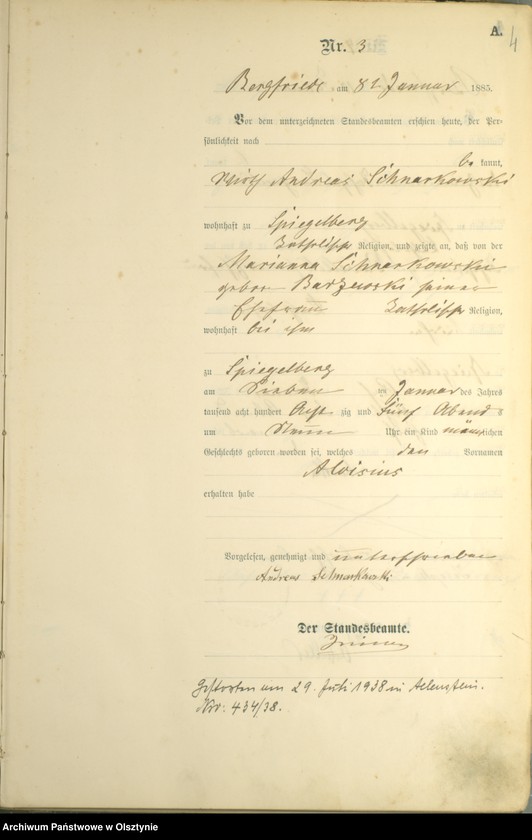 A.
4
Nr. 3
Bergfriede am 8ten Januar 1885.
Vor dem unterzeichneten Standesbeamten erschien heute, der Per-
sönlichkeit nach
be kannt,
Andreas Schnarkowski
wohnhaft zu Spiegelberg
katholischer Religion, und zeigte an, daß von der
Marianna Schnarkowski
geborene Barzewski seiner
Ehefrau katholischer Religion,
wohnhaft bei ihm
zu Spiegelberg
am Sieben ten Januar des Jahres
tausend acht hundert Acht zig und Fünf Abend s
um Neun Uhr ein Kind männlichen
Geschlechts geboren worden sei, welches den Vornamen
Aloisius
erhalten habe
Vorgelesen, genehmigt und unterschrieben
Andreas Schnarkowski
Der Standesbeamte.
Gestorben am 29. Juli 1938 in Allenstein.
Nr. 434/38.
Archiwum Państwowe w Olsztynie